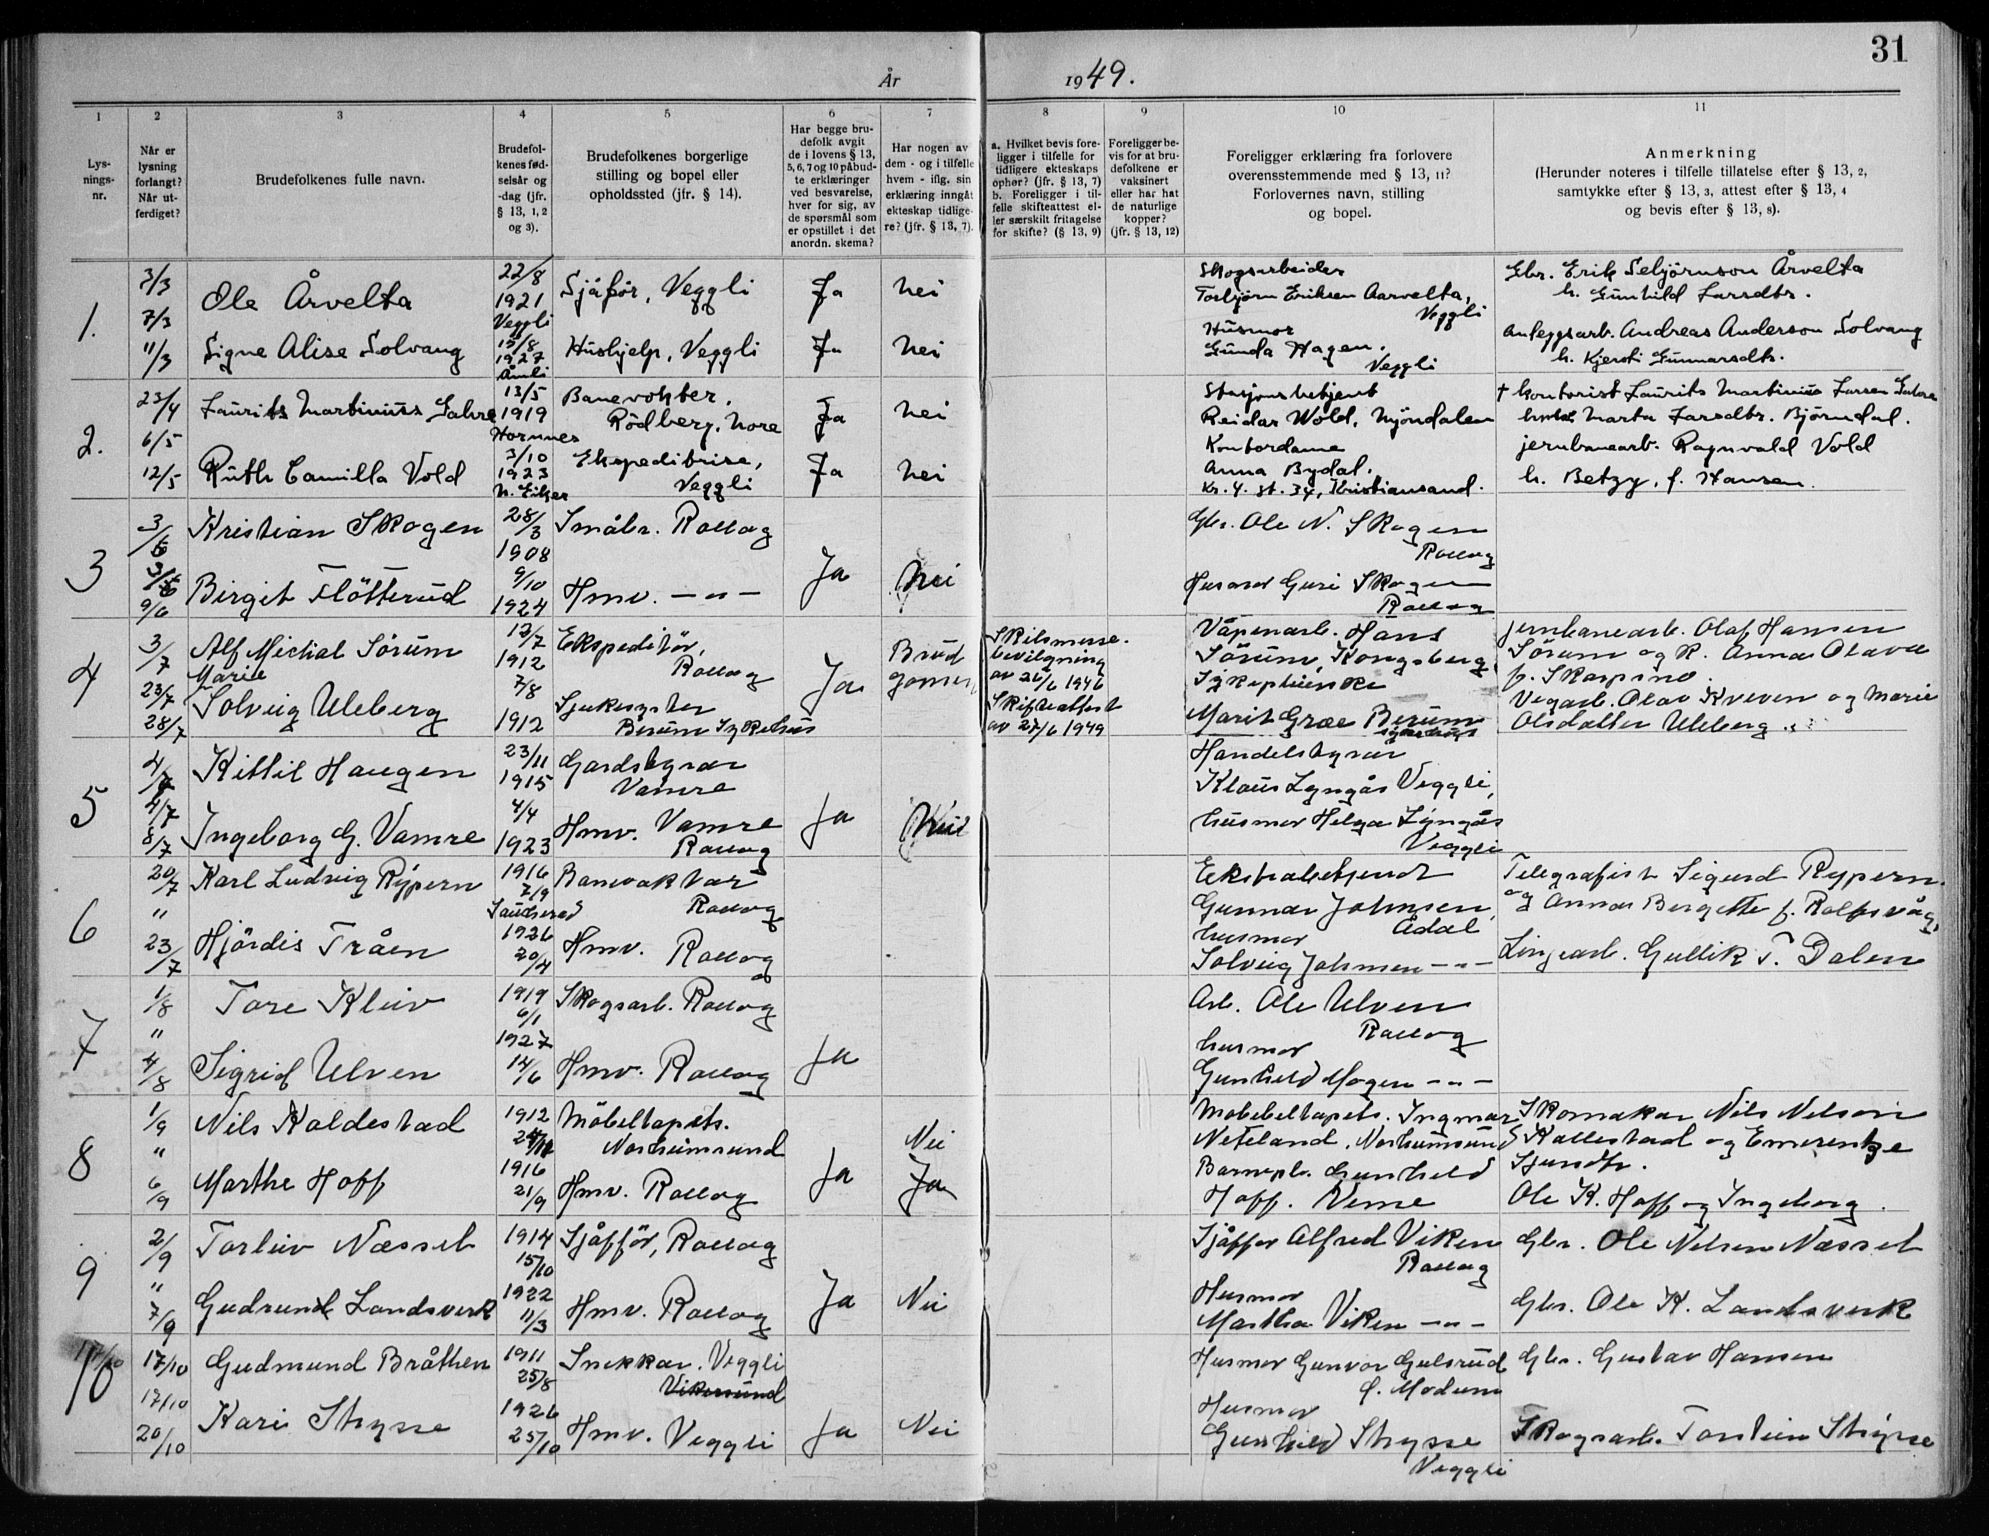 31
År 1949.
1 2 3 4 5 6 7 8 9 10 11
Lys-
nings-
nr.
Når er
lysning
forlangt?
Når ut-
ferdiget?
Brudefolkenes fulle navn.
Brudefol-
kenes fød-
selsår og
-dag (jfr.
§ 13, 1, 2
og 3).
Brudefolkenes borgerlige
stilling og bopel eller
opholdssted (jfr. § 14).
Har begge bru-
defolk avgit
de i lovens § 13,
5, 6, 7 og 10 påbud-
te erklæringer
ved besvarelse,
hver for sig, av
de spørsmål som
er opstillet i det
anordn. skema?
Har nogen av
dem - og i tilfelle
hvem - iflg. sin
erklæring inngåt
ekteskap tidlige-
re? (jfr. § 13, 7).
a. Hvilket bevis fore-
ligger i tilfelle for
tidligere ekteskaps
ophør? (jfr. § 13, 7)
b. Foreligger i til-
felle skifteattest el-
ler særskilt fritagelse
for skifte? (§ 13, 9)
Foreligger be-
vis for at bru-
defolkene er
vaksinert
eller har hat
de naturlige
kopper?
(jfr. § 13, 12)
Foreligger erklæring fra forlovere
overensstemmende med § 13, 11?
Forlovernes navn, stilling
og bopel.
Anmerkning
(Herunder noteres i tilfelle tillatelse efter § 13, 2,
samtykke efter § 13, 3, attest efter § 13, 4
og bevis efter § 13, 8).
1.
3/3
7/3
11/3
Ole Årvelta
22/8
1921
Veggli
Sjåfør, Veggli
Ja
nei
Skogsarbeider
Torbjørn Eriksen Aarvelta,
Veggli
Gbr. Erik Sebjørnson Årvelta
h. Gunhild Larsdtr.
Signe Alise Solvang
1927
Åmli
Hushjelp, Veggli
Ja
nei
Husmor
Gunda Hagen.
Veggli
Anleggsarb. Andreas Anderson Solvang
h. Kjersti Gunnarsdtr.
2.
23/4
6/5
12/5
Laurits Martinius Galvre
13/5
1919
Hornnes
Banevokter,
Rødberg, Nore
Ja
nei
Stasjonsbetjent
Reidar Wold, Mjøndalen
† kontorist Laurits Martinius Larsen
Marta Larsdtr. Bjørndal.
Ruth Camilla Vold
3/10
1923
N. Eiker
Ekspeditrise,
Veggli
Ja
nei
Kontordame
Anna Bydal.
Kr. 4. st. 34, Kristiansand.
jernbanearb. Ragnvald Vold
h. Betzy, f. Hansen.
3
3/6
9/6
Kristian Skogen
28/3
1908
Småbr. Rollag
Ja
Nei
Gbr. Ole N. Skogen
Rollag
Birgit Fløtterud
9/10
1924
Hmv. - " -
Husmor Guri Skogen
Rollag
4
3/7
23/7
28/7
Alf Michal Sørum
12/7
1912
Ekspeditør,
Rollag
Ja
Brud
gomen
Skilsmisse.
bevilgning
av 26/6 1946
Skifteattest
av 27/6 1949
Våpenarb. Hans
Sørum, Kongsberg
Jernbanearb. Olaf Hansen
Sørum og K. Anna Olava
f. Skarpmo.
Marie
Solveig Uleberg
7/8
1912
Sjukesyster
Berum Sykehus
Sykepleierske
Marit Græe Berum
sykehus
Vegarb. Olav Kveven og Marie
Olsdatter Uleberg.
5
4/7
4/7
8/7
Kittil Haugen
23/11
1915
Gardstyrar
Vamre
Ja
Nei
Handelstyrar
Klaus Lyngås Veggli,
Ingeborg G. Vamre
4/4
1923
Hmv. Vamre
Rollag
husmor Helga Lyngås
Veggli
6
20/7
"
23/7
Karl Ludvig Rypern
1916
7/9
Sauherad
Banevaktar
Rollag
Ekstrabetjent
Gunnar Johnsen,
Ådal
Telegrafist Sigurd Rypern.
og Anna Bergette f. Rolfsvåg,
Hjördis Tråen
1926
20/4
Hmv. Rollag
husmor
Solveig Johnsen - " -
Linjearb. Gullik T. Dalen
7
1/8
"
4/8
Tore Kleiv
1919
6/1
Skogsarb. Rollag
Ja
Arb. Ole Ulven
Rollag
Sigrid Ulven
1927
14/6
Hmv. Rollag
husmor
Gunhild Mogen - " -
8
1/9
"
6/9
Nils Kaldestad
1912
Möbeltapets.
Norheimsund
Ja
Nei
Möbeltapets. Ingmar
Neteland, Norheimsund
Skomakar Nils Nelson
Kallestad og Emerentze
Marthe Hoff
1916
21/9
Hmv. Rollag
Ja
Barnepl. Gunhild
Hoff. Neme
Ole K. Hoff og Ingeborg.
9
2/9
"
7/9
Torleiv Næsset
1914
15/10
Sjåffør, Rollag
Ja
Nei
Sjåffør Alfred Viken
Rollag
Gbr. Ole Nelsen Næsset
Gudrund Landsverk
1922
11/3
Hmv. Rollag
Husmor
Martha Viken - " -
Gbr. Ole K. Landsverk
10
17/10
17/10
20/10
Gudmund Bråthen
1911
25/8
Snekkar. Veggli
Vikersund
Ja
Nei
Husmor Gunvor Gulsrud
f. Modum
Gbr. Gustav Hansen
Kari Stysse
1926
25/10
Hmv. Veggli
Husmor
Gunhild Stysse
Veggli
Skogsarb. Torstein Stysse